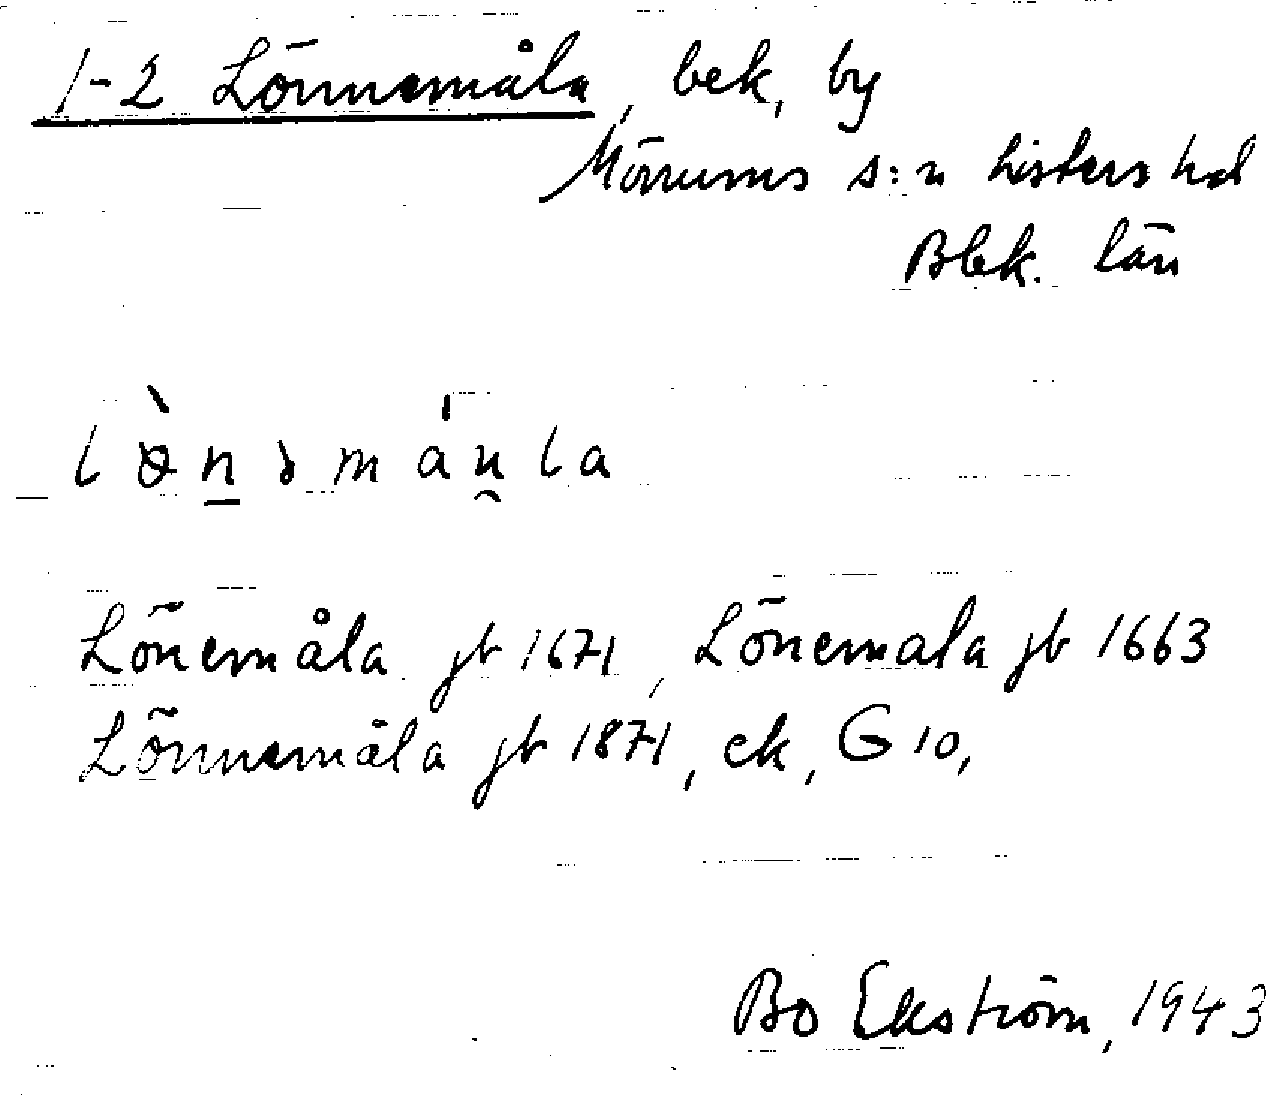 1-2 Lönnemåla, bek, by
Mörrums s:n Listers hd
Blek. län
lø̀n̲əmáu̯la
Lönemåla jb 1671, Lönemala jb 1663
Lönnemåla jb 1871, ek, G 10,
Bo Ekström, 1943